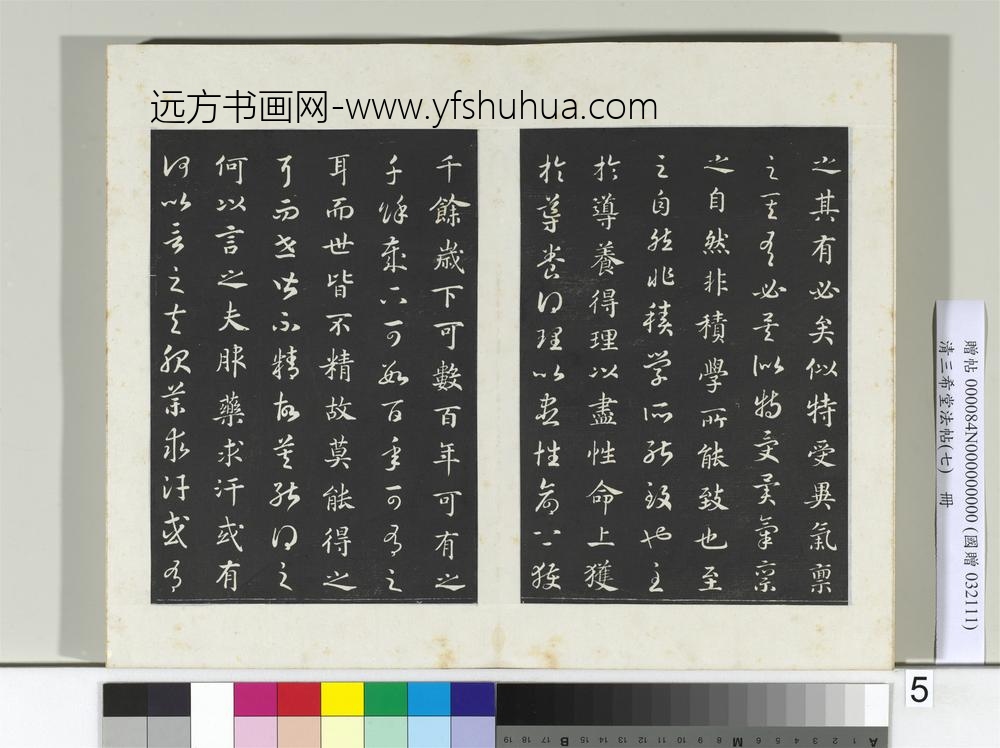 远方书画网-www.yfshuhua.com
之其有必矣似特受異氣稟
之其有必矣似特受異氣稟
之自然非積學所能致也至
之自然非積學所能致也至
於導養得理以盡性命上獲
於導養得理以盡性命上獲
千餘歲下可數百年可有之
千餘歲下可數百年可有之
耳而世皆不精故莫能得之
耳而世皆不精故莫能得之
何以言之夫服藥求汗或有
何以言之夫服藥求汗或有
贈帖 000084N000000000 (國贈 032111)
清三希堂法帖(七) 冊
5
A 1 2 3 4 5 6 M 8 9 10 11 12 13 14 15 B 17 18 19